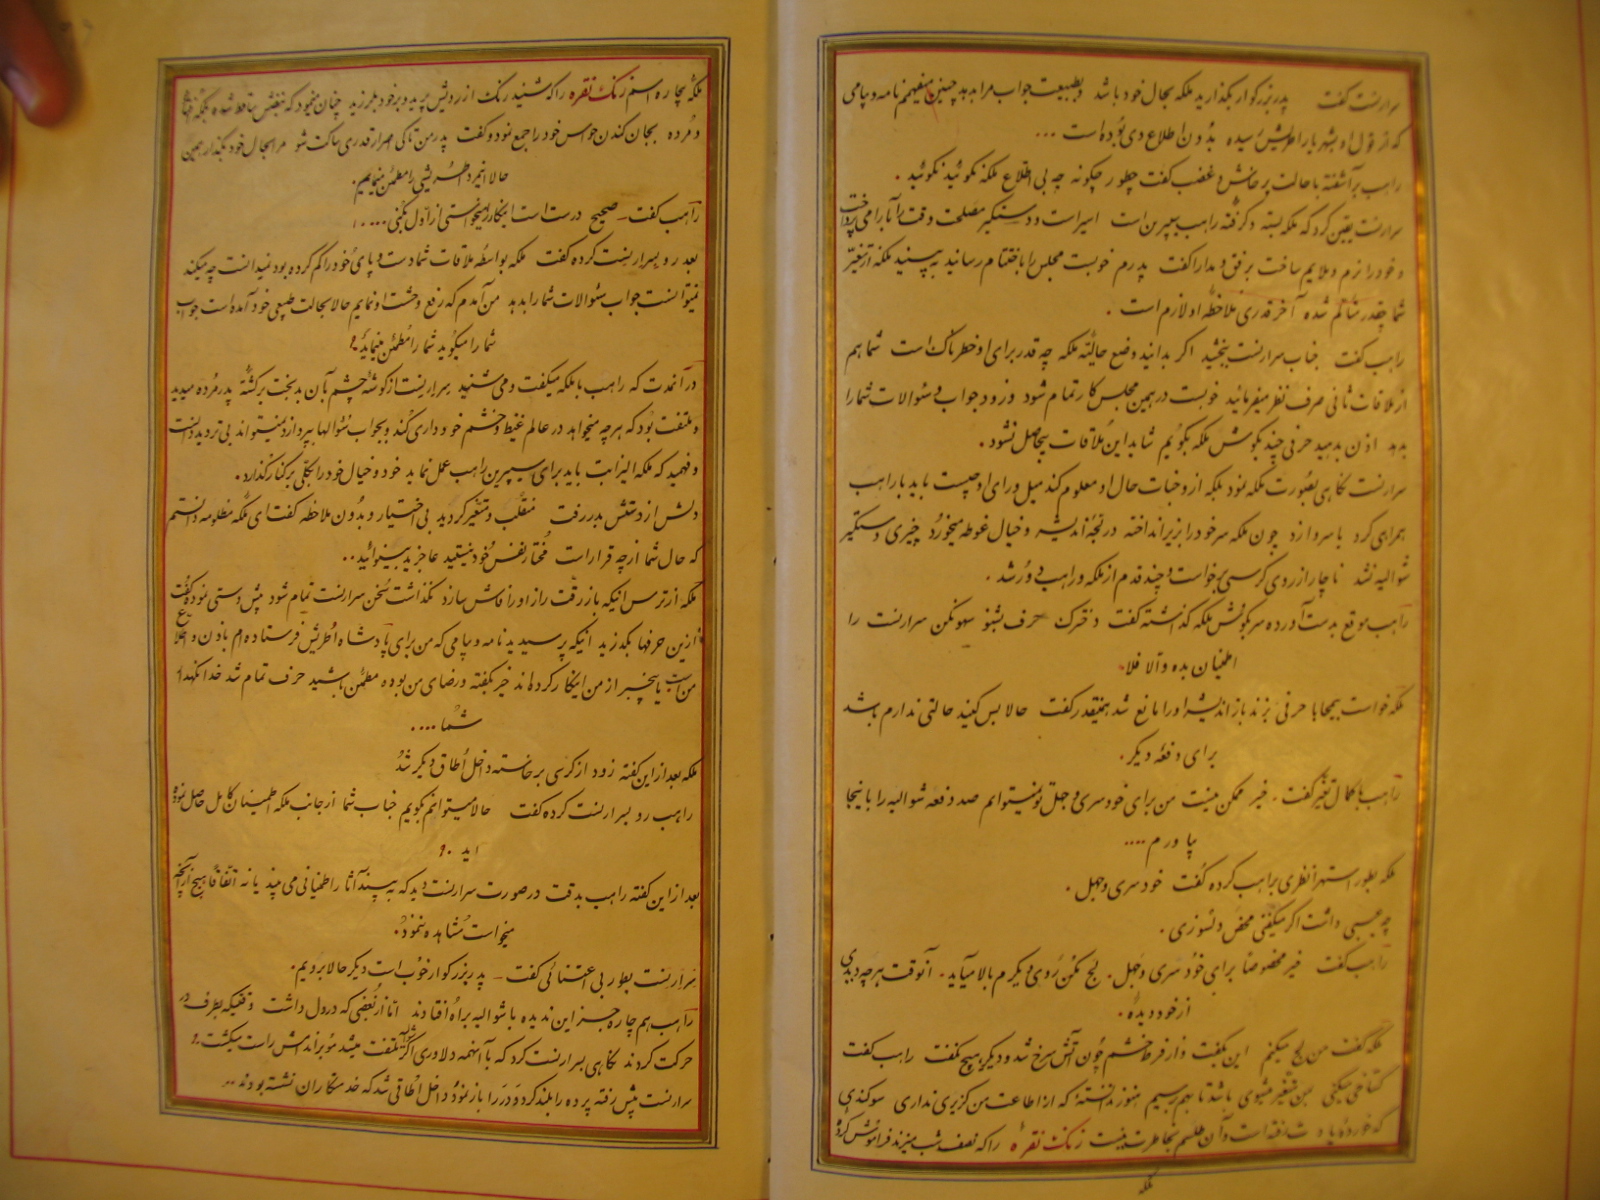 سرارنست گفت پدر بزرگوار بگذارید ملکه بحال خود باشد و بطبیعت جواب مرا بدهد چنین میفهمم نامه و پیامی
که از قول او بشهریار اطریش رسیده بدون اطلاع وی بوده است ...
راهب برآشفته با حالت پرخاش و غضب گفت چطور چگونه چه بی اطلاع ملکه نگوئید نگوئید .
سرارنست یقین کرد که ملکه بسته و گرفته راهب سیپرین است اسیر است و دستگیر مصلحت وقت را بآرامی پرداخت
و خود را نرم و ملایم ساخت برفق و مدارا گفت پدرم خوبست مجلس را باختتام رسانید به بینید ملکه از تغیّر
شما چقدر متألم شده آخر قدری ملاحظهٔ او لازم است .
راهب گفت جناب سرارنست ببخشید اگر بدانید وضع حالیّهٔ ملکه چه قدر برای او خطرناک است شما هم
از ملاقات ثانی صرف نظر میفرمائید خوبست در همین مجلس کار تمام شود و زود جواب سئوالات شما را
بدهد اذن بدهید حرفی چند بگوش ملکه بگویم شاید این ملاقات بیحاصل نشود .
سرارنست نگاهی بصورت ملکه نمود بلکه از وجنات حال او معلوم کند میل و رای او چیست باید با راهب
همراهی کرد یا سر وا زد چون ملکه سر خود را بزیر انداخته در لجّهٔ اندیشه و خیال غوطه میخورد چیزی دستگیر
شوالیه نشد ناچار از روی کرسی برخواست و چند قدم از ملکه و راهب دور شد .
راهب موقع بدست آورده سر بگوش ملکه گذاشته گفت دخترک حرف بشنو سهو نکن سرارنست را
اطمینان بده و الا فلا .
ملکه خواست بیمحابا حرفی بزند باز اندیشه او را مانع شد همینقدر گفت حالا بس کنید حالتی ندارم باشد
برای دفعهٔ دیگر .
راهب با کمال تغیّر گفت . خیر ممکن نیست من برای خودسری و جهل تو نمیتوانم صد دفعه شوالیه را باینجا
بیاورم ....
ملکه بطور استهزا نظری براهب کرده گفت خودسری و جهل .
چه عیبی داشت اگر میگفتی محض دلسوزی .
راهب گفت خیر مخصوصاً برای خودسری و جهل . لج نکن روی دیگرم بالا میآید . آنوقت هر چه دیدی
از خود دیدهٔ .
ملکه گفت من لج میکنم این بگفت و از فرط خشم چون آتش سرخ شد و دیگر هیچ نگفت راهب گفت
گستاخی میکنی بمن متغیر میشوی باشد تا بهم رسیم هنوز ندانستهٔ که از اطاعت من گزیری نداری سوگندی
که خوردهٔ یادت رفته است و آن طلسم بخاطرت نیست زنگ نقره را که نصف شب میزند فراموش کردهٔ
ملکه
ملکهٔ بیچاره اسم زنگ نقره را که شنید رنگ از رویش پرید و بر خود بلرزید چنان مینمود که نبضش ساقط شده بلکه نهایة
و مرده بجان کندن حواس خود را جمع نمود و گفت پدر من تا کی اصرار قدری ساکت شو مرا بحال خود بگذار همین
حالا انمرد اطریشی را مطمئن مینمایم .
راهب گفت صحیح درست است اینکار را میخواستی از اول بکنی ....
بعد رو بسرارنست کرده گفت ملکه بواسطهٔ ملاقات شما دست و پای خود را گم کرده بود نمیدانست چه میکند
نمیتوانست جواب سئوالات شما را بدهد من آمدم که رفع وحشت او نمایم حالا بحالت طبیعی خود آمده است جواب
شما را میگوید شما را مطمئن مینماید .
در آنمدت که راهب با ملکه میگفت و می شنید سرارنست از گوشهٔ چشم بآن بدبخت برگشتهٔ پدر مرده میدید
و ملتفت بود که هر چه میخواهد در عالم غیظ و خشم خود داری کند و بجواب سئوالها بپردازد نمیتواند بی تردید دانست
و فهمید که ملکه الیزابت باید برای سیپرین راهب عمل نماید خود و خیال خود را بکلّی برکنار گذارد .
دلش از دستش بدر رفت منقلب و متغیر گردید بی اختیار و بدون ملاحظه گفت ای ملکه مظلومه دانستم
که حال شما از چه قرار است مختار نفس خود نیستید عاجزید بینوائید ..
ملکه از ترس اینکه باز رقت راز او را فاش سازد نگذاشت سخن سرارنست تمام شود پیش دستی نموده گفت
ازین حرفها بگذرید اینکه پرسیدید نامه و پیامی که من برای پادشاه اطریش فرستاده ام باذن و اطلاع
من است یا بیخبر از من اینکار کرده اند خیر بگفته و رضای من بوده مطمئن باشید حرف تمام شد خدا نگهدار
شما ....
ملکه بعد از این گفته زود از کرسی برخاسته داخل اطاق دیگر شد
راهب رو بسرارنست کرده گفت حالا میتوانم بگویم جناب شما از جانب ملکه اطمینان کامل حاصل نموده
اید .
بعد از این گفته راهب بدقت در صورت سرارنست دید که به بیند آثار اطمینانی می بیند یا نه اتفاقاً هیچ از آنچه
میخواست مشاهده ننمود .
سرارنست بطور بی اعتنائی گفت پدر بزرگوار خوب است دیگر حالا برویم .
راهب هم چاره جز این ندیده با شوالیه براه افتادند اما از بغضی که در دل داشت وقتیکه بطرف در
حرکت کردند نگاهی بسرارنست کرد که با آنهمه دلاوری اگر ملتفت میشد مو بر اندامش راست میگشت .
سرارنست پیش رفته پرده را بلند کرد و در را باز نمود داخل اطاقی شد که خدمتکاران نشسته بودند ..